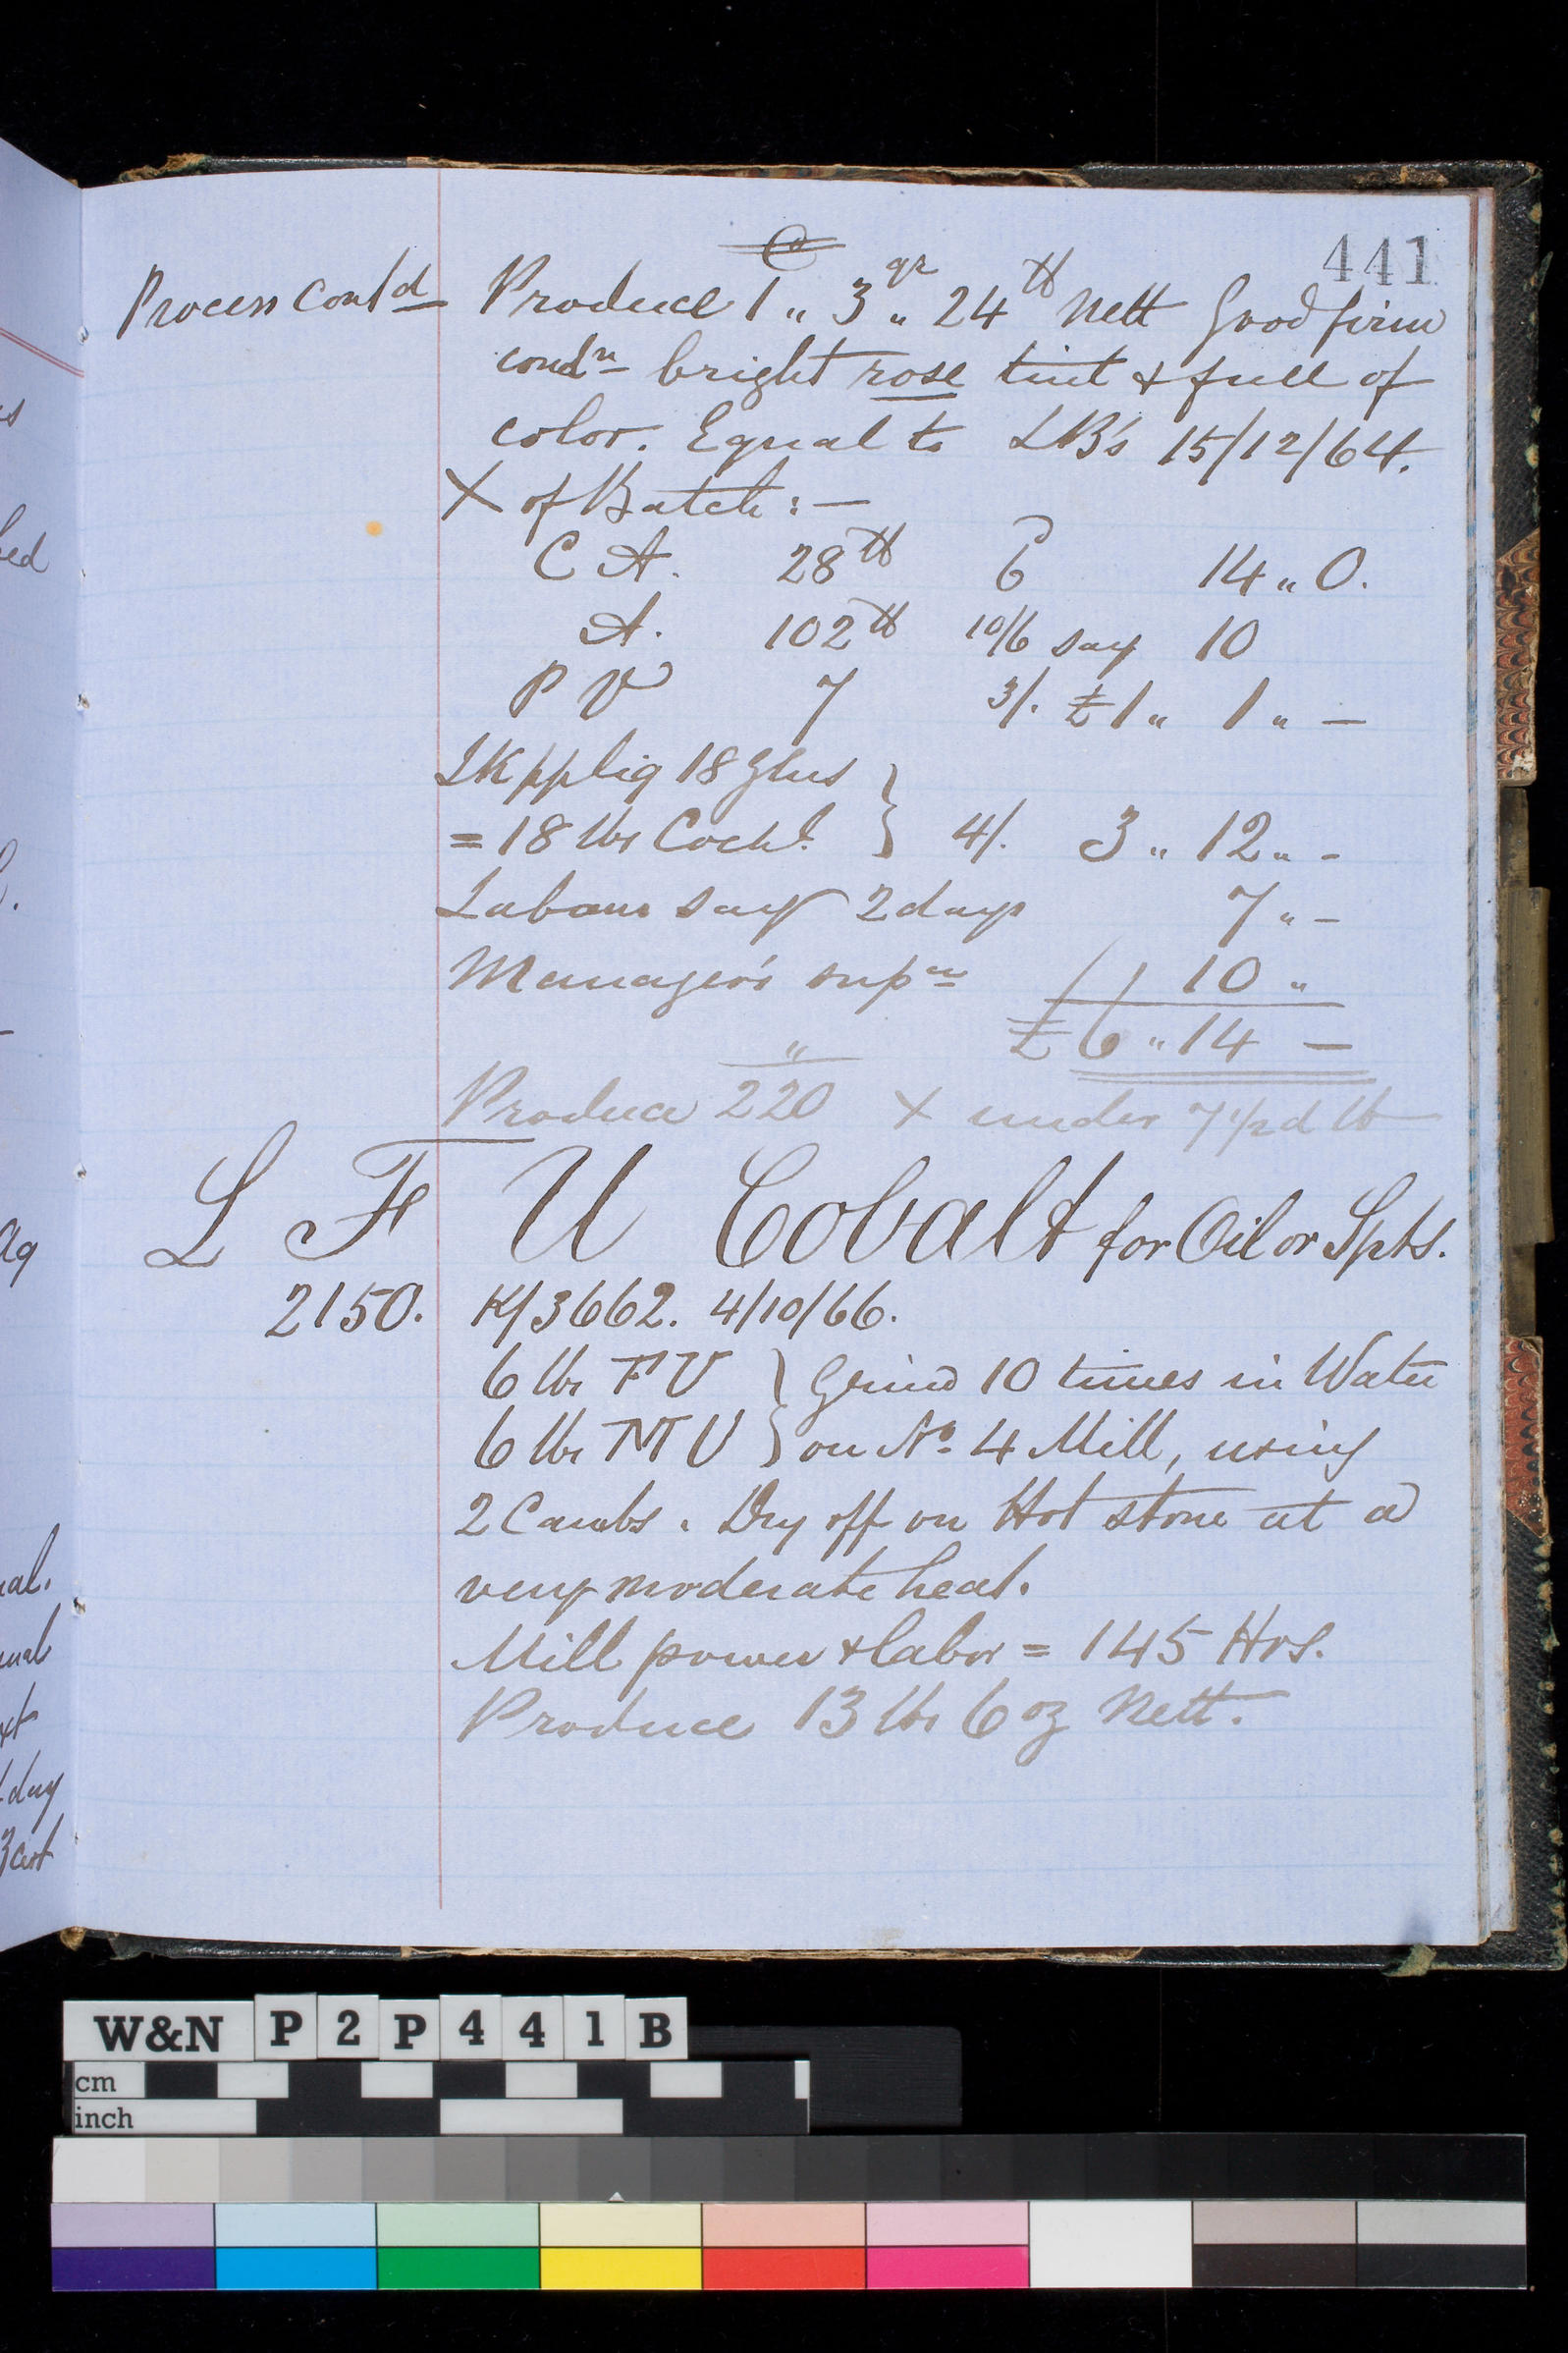 441
Process Contd Produce 1 „ 3 qr „ 24 lb Nett Good firm
condn bright rose tint & full of
color. Equal to LB's 15/12/64.
X of Batch :—
C A. 28 lb 6 14 „ 0.
A. 102 lb 10/6 say 10
P V 7 3/. £1 „ 1 „ —
LK pp liq 18 Glns
= 18 lbs Cochl } 4/. 3 „ 12 „ -
Labour say 2 days 7 „ -
Manager's supn 10 „
£6 „ 14 —
Produce 220 X under 7½d lb
L F U Cobalt for Oil or Spts.
2150. K/3662. 4/10/66.
6 lbs FU } Grind 10 times in Water
6 lbs MU } on No. 4 Mill, using
2 Carubs. Dry off on Hot stone at a
very moderate heat.
Mill power & labor = 145 Hrs.
Produce 13 lbs 6 oz Nett.
ag
day
W&N P2P441B
cm
inch